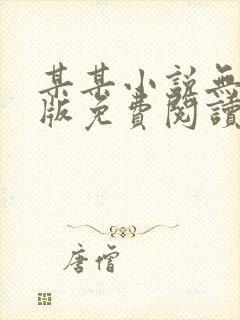 某某小說無
版免費閱讀
唐僧